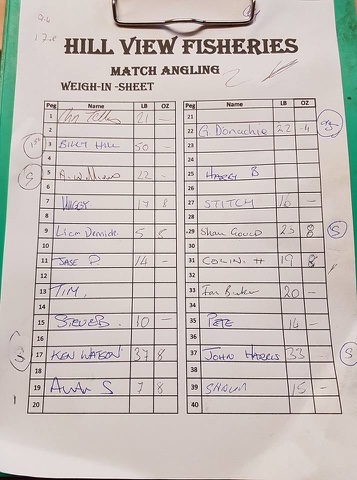 HILL VIEW FISHERIES
MATCH ANGLING
WEIGH-IN -SHEET
Peg Name LB OZ
1 21 -
2
1st 3 BILLY HILL 50 -
4
S 5 A. Williams 22 -
6
7 WIGGY 17 8
8
9 Liam Dernide 5 8
10
11 JASE D 14 -
12
13 TIM.
14
15 STEVE B. 10 -
16
17 KEN WATSON 37 8
18
19 Alan S 7 8
20
Peg Name LB OZ
21
22 G Donachie 22 -4
23
24
25 HARRY B
26
27 STITCH 16 -
28
29 Shaun Gould 23 8 S
30
31 COLIN. H 19 8
32
33 Ian Barker 20 -
34
35 PETE 14 -
36
37 JOHN HARRIS 33 - S
38
39 SHAUN 15 -
40